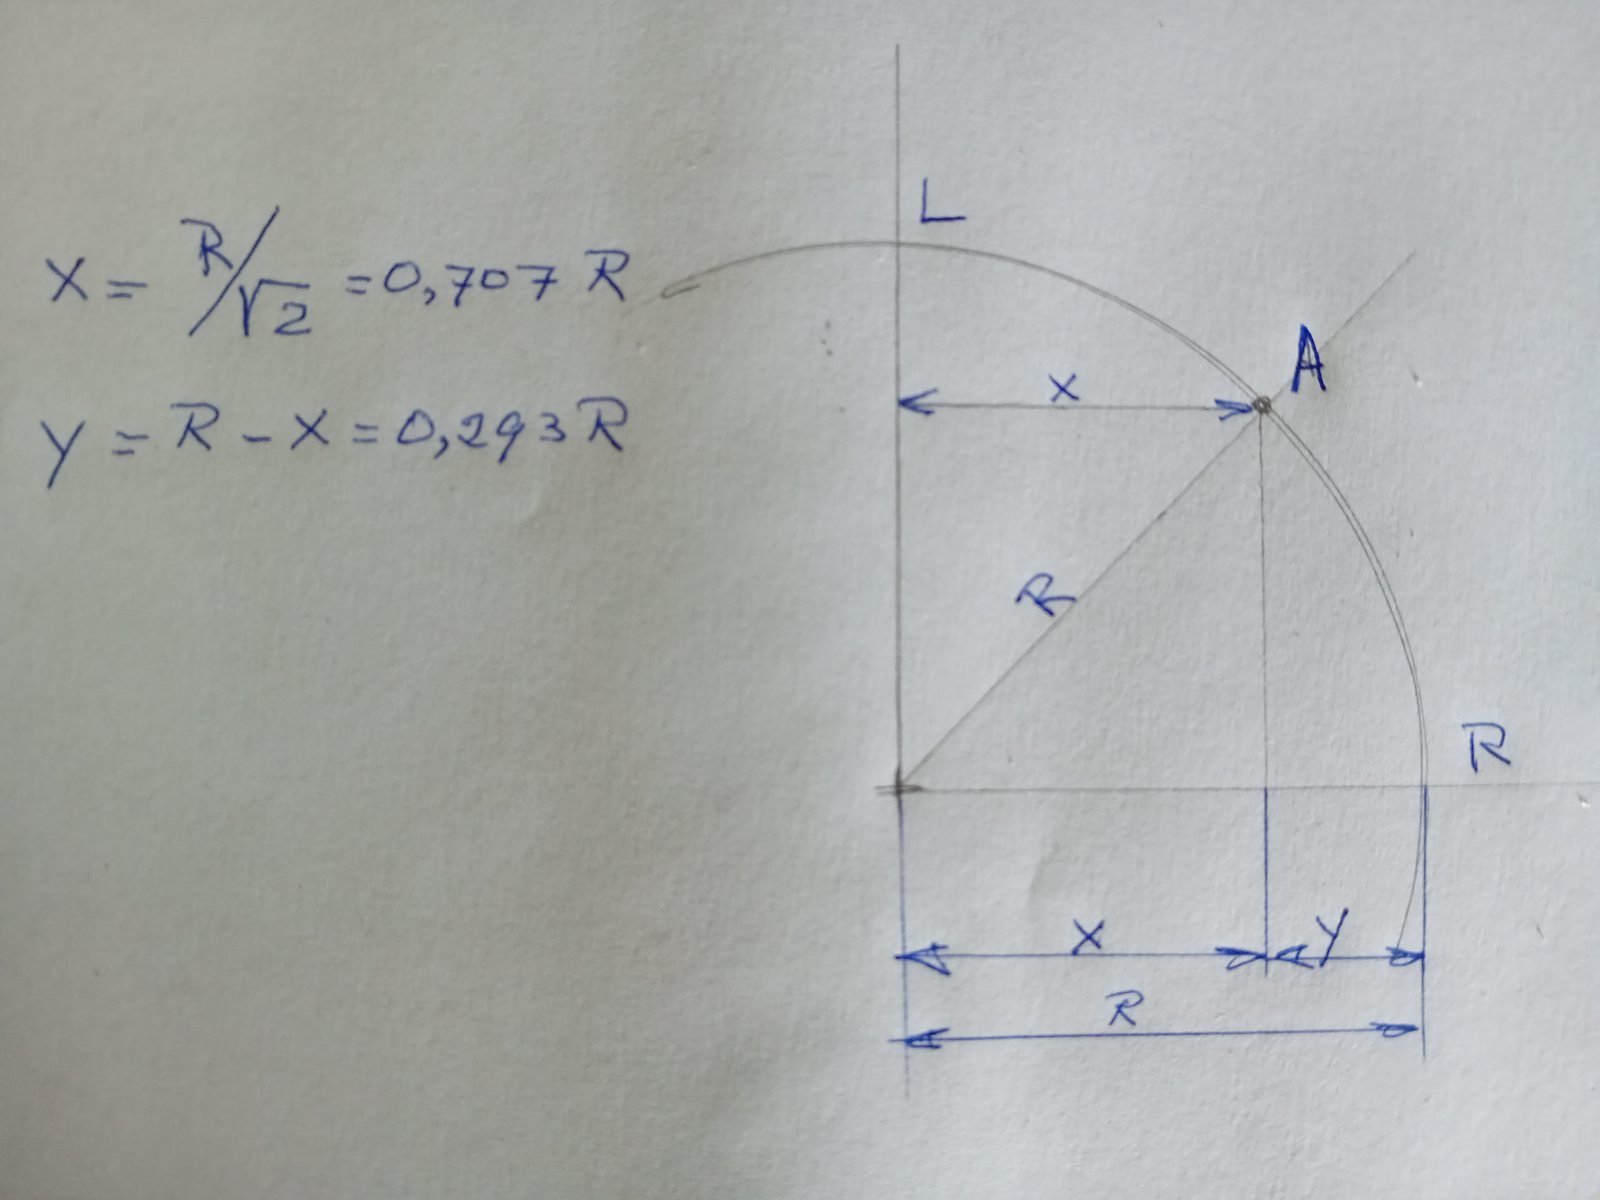 L
X = R/√2 = 0,707 R
A
x
Y = R - X = 0,293 R
R
R
X
Y
R